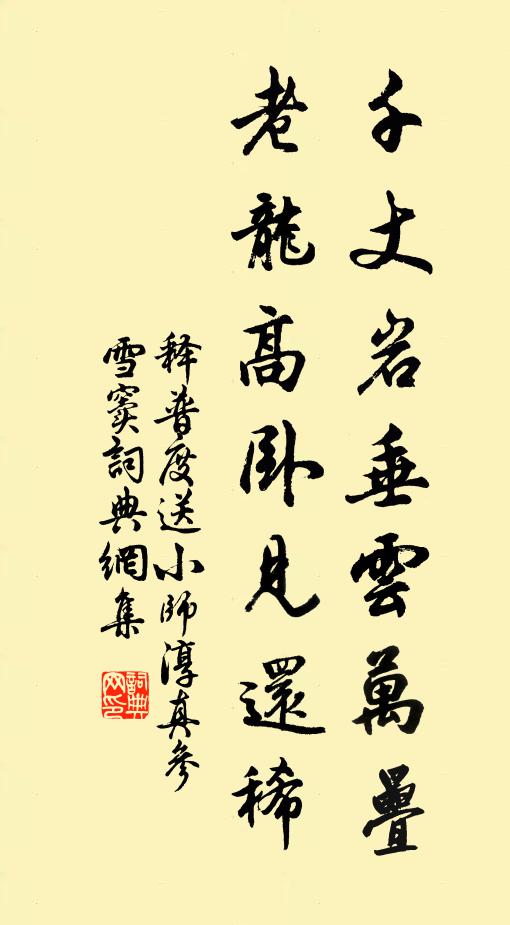 千丈岩垂雲萬疊
老龍高臥見還稀
释普度送小師淳真參
雪竇詞典網集
詞典網印